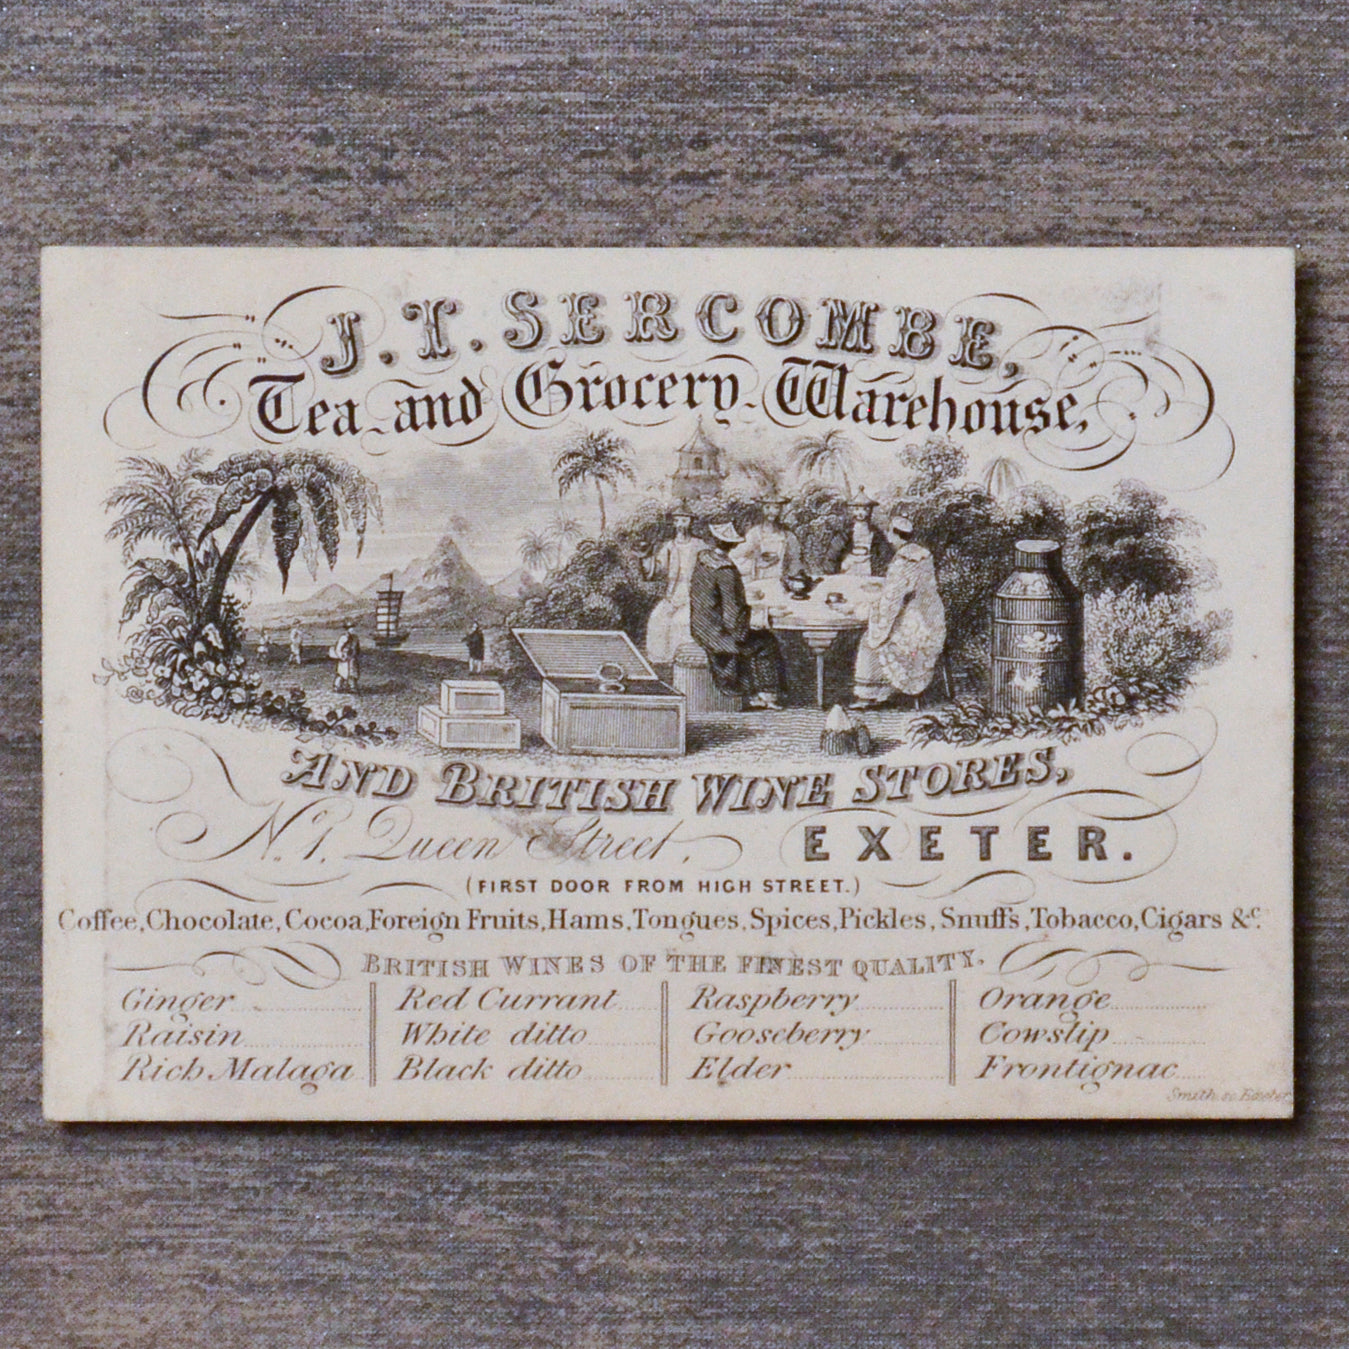 J. T. SERCOMBE,
Tea and Grocery Warehouse,
AND BRITISH WINE STORES,
No. 1, Queen Street, EXETER.
(FIRST DOOR FROM HIGH STREET.)
Coffee, Chocolate, Cocoa, Foreign Fruits, Hams, Tongues, Spices, Pickles, Snuffs, Tobacco, Cigars &c.
BRITISH WINES OF THE FINEST QUALITY.
Ginger Red Currant Raspberry Orange
Raisin White ditto Gooseberry Cowslip
Rich Malaga Black ditto Elder Frontignac
Smith sc. Exeter